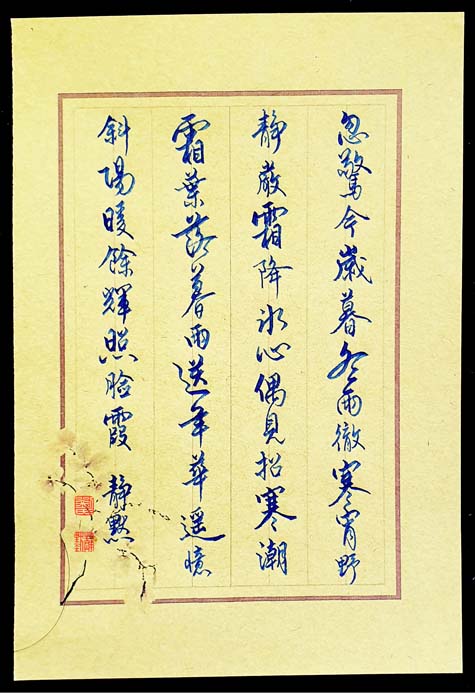 忽驚今歲暮冬雨徹寒宵野
靜嚴霜降冰心偶見招寒潮
霜葉落暮雨送年華遥憶
斜陽暖餘輝照臉霞 靜默